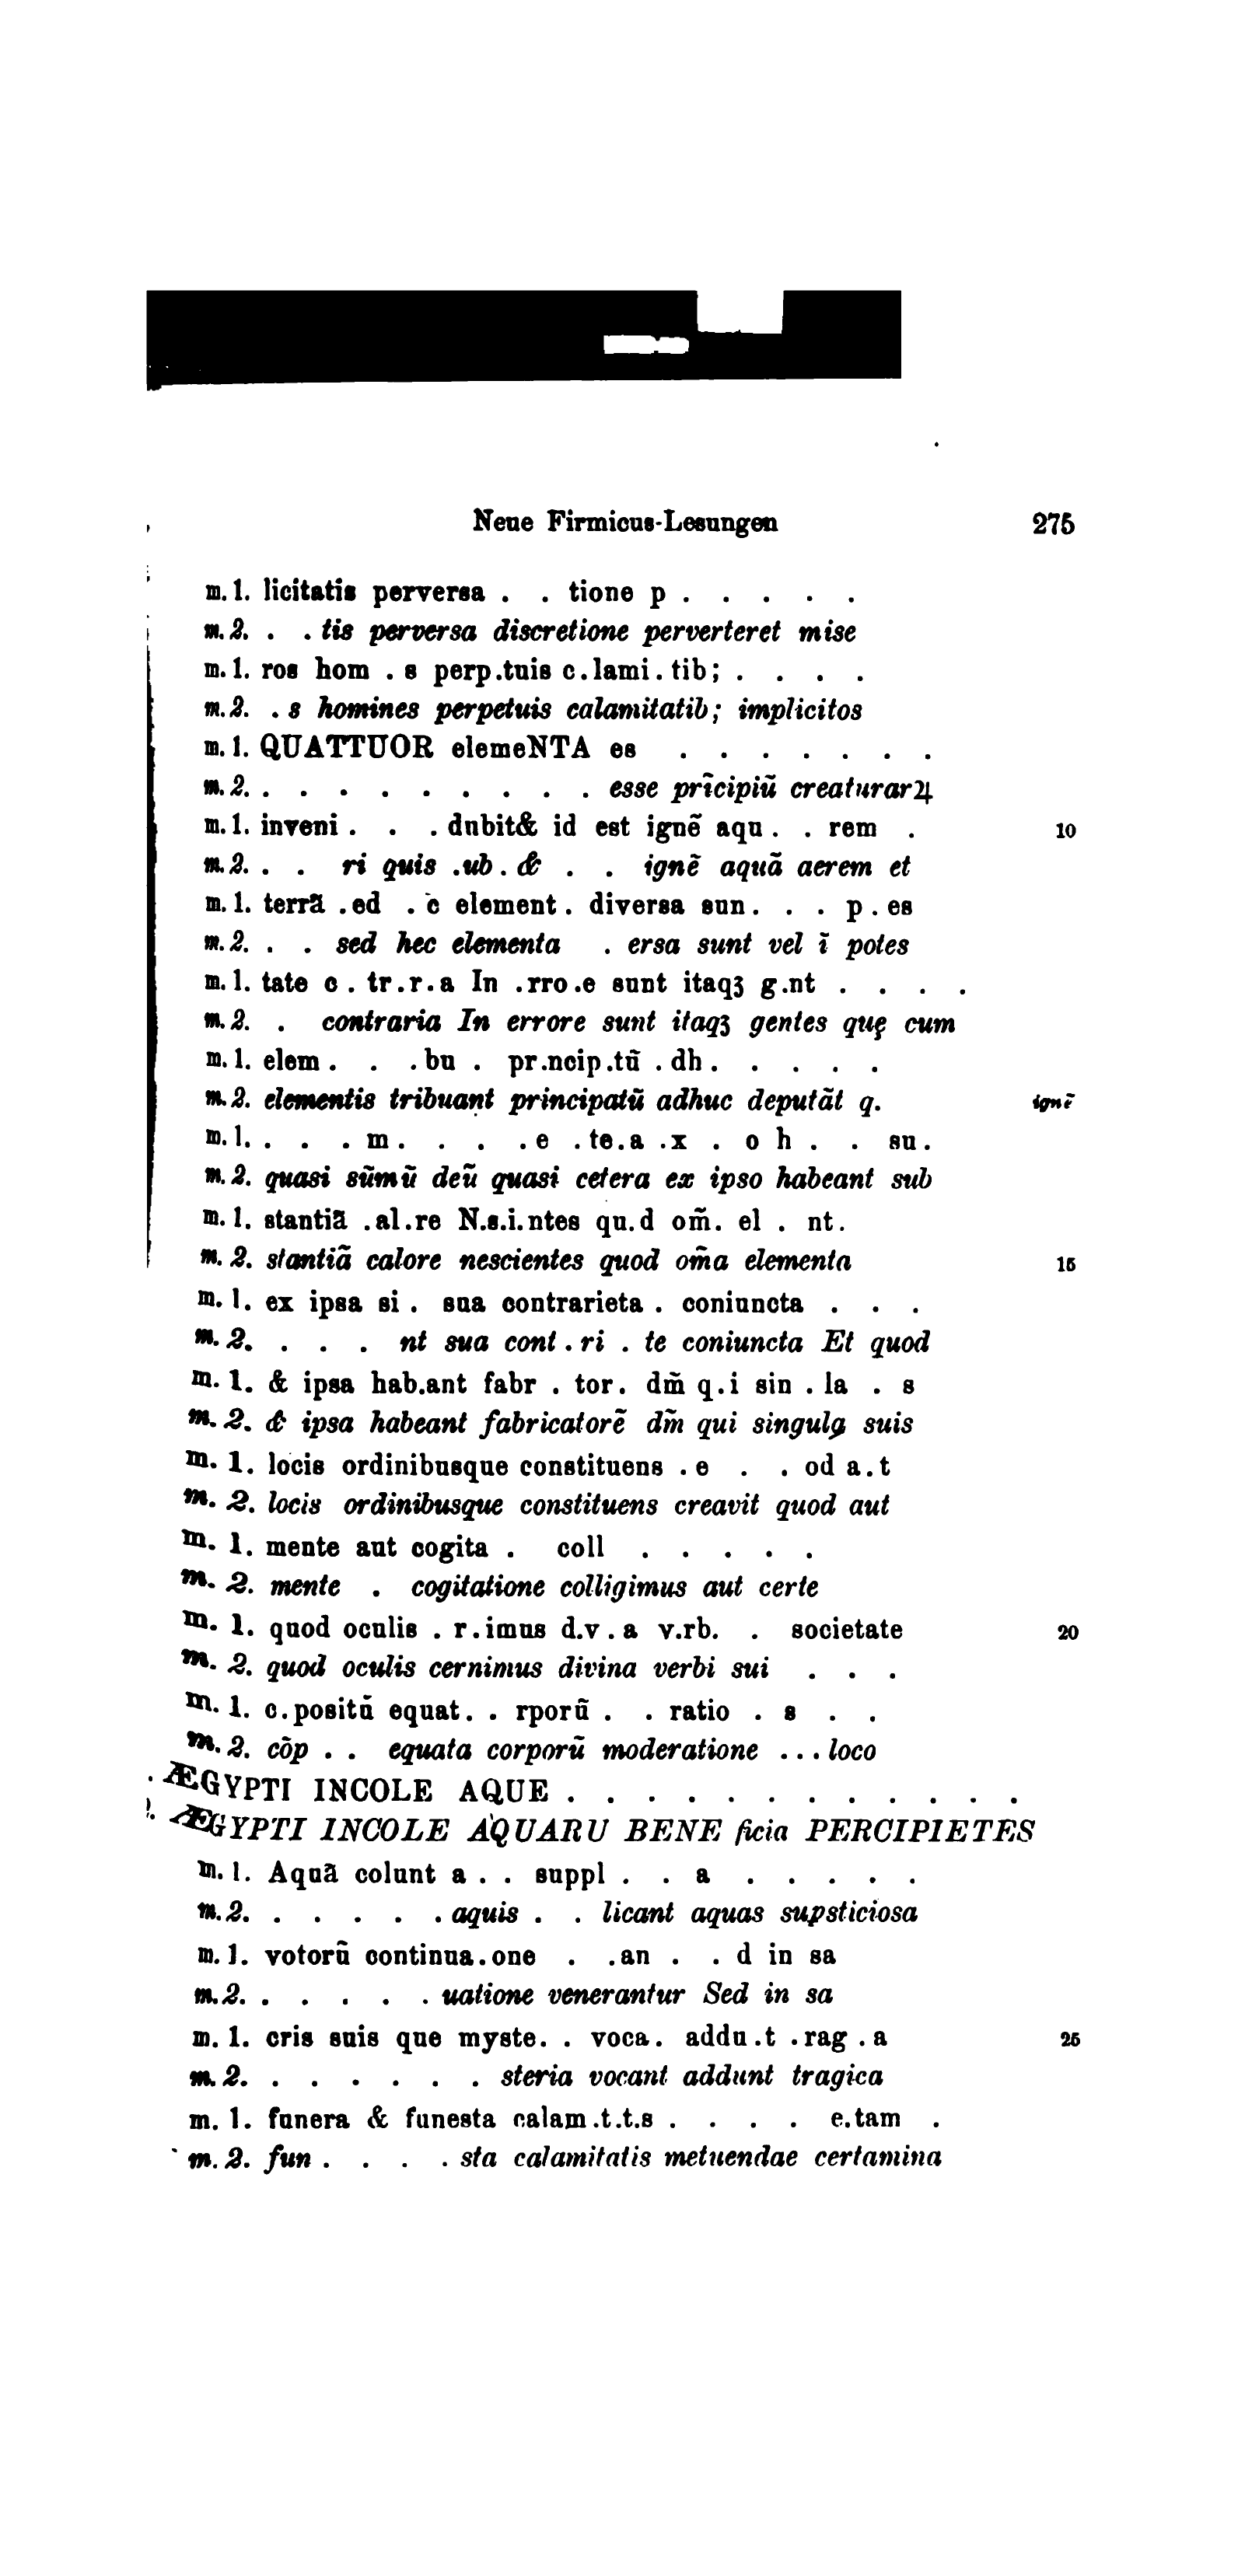 Neue Firmicus-Lesungen 275
m. 1. licitatis perversa . . tione p . . . . .
m. 2. . . tis perversa discretione perverteret mise
m. 1. ros hom . s perp.tuis c.lami.tib; . . . .
m. 2. . s homines perpetuis calamitatib; implicitos
m. 1. QUATTUOR elemeNTA es . . . . . . .
m. 2. . . . . . . . . . esse prīcipiū creaturarꝝ
m. 1. inveni . . . dubit& id est ignē aqu . . rem . 10
m. 2. . . ri quis .ub . & . . ignē aquā aerem et
m. 1. terrā .ed . c element . diversa sun . . . p . es
m. 2. . . sed hec elementa . ersa sunt vel ī potes
m. 1. tate c . tr.r.a In .rro.e sunt itaqꝫ g.nt . . . .
m. 2. . contraria In errore sunt itaqꝫ gentes quę cum
m. 1. elem . . . bu . pr.ncip.tū .dh . . . . .
m. 2. elementis tribuant principatū adhuc deputāt q. ignē
m. 1. . . . m . . . . e .te.a .x . o h . . su .
m. 2. quasi sūmū deū quasi cetera ex ipso habeant sub
m. 1. stantiā .al.re N.s.i.ntes qu.d om̄. el . nt .
m. 2. stantiā calore nescientes quod om̄a elementa 15
m. 1. ex ipsa si . sua contrarieta . coniuncta . . .
m. 2. . . . nt sua cont . ri . te coniuncta Et quod
m. 1. & ipsa hab.ant fabr . tor . dm̄ q.i sin . la . s
m. 2. & ipsa habeant fabricatorē dm̄ qui singula suis
m. 1. locis ordinibusque constituens . e . . od a . t
m. 2. locis ordinibusque constituens creavit quod aut
m. 1. mente aut cogita . coll . . . . .
m. 2. mente . cogitatione colligimus aut certe
m. 1. quod oculis . r.imus d.v.a v.rb. . societate 20
m. 2. quod oculis cernimus divina verbi sui . . .
m. 1. c.positū equat . . rporū . . ratio . s . .
m. 2. cōp . . equata corporū moderatione ... loco
. ÆGYPTI INCOLE AQUE . . . . . . . . . . . .
2. ÆGYPTI INCOLE AQUARU BENE ficia PERCIPIETES
m. 1. Aquā colunt a . . suppl . . a . . . . .
m. 2. . . . . . aquis . . licant aquas suꝑsticiosa
m. 1. votorū continua.one . .an . . d in sa
m. 2. . . . . . uatione venerantur Sed in sa
m. 1. cris suis que myste . . voca . addu.t .rag.a 25
m. 2. . . . . . . steria vocant addunt tragica
m. 1. funera & funesta calam.t.t.s . . . . e.tam .
m. 2. fun . . . . sta calamitatis metuendae certamina